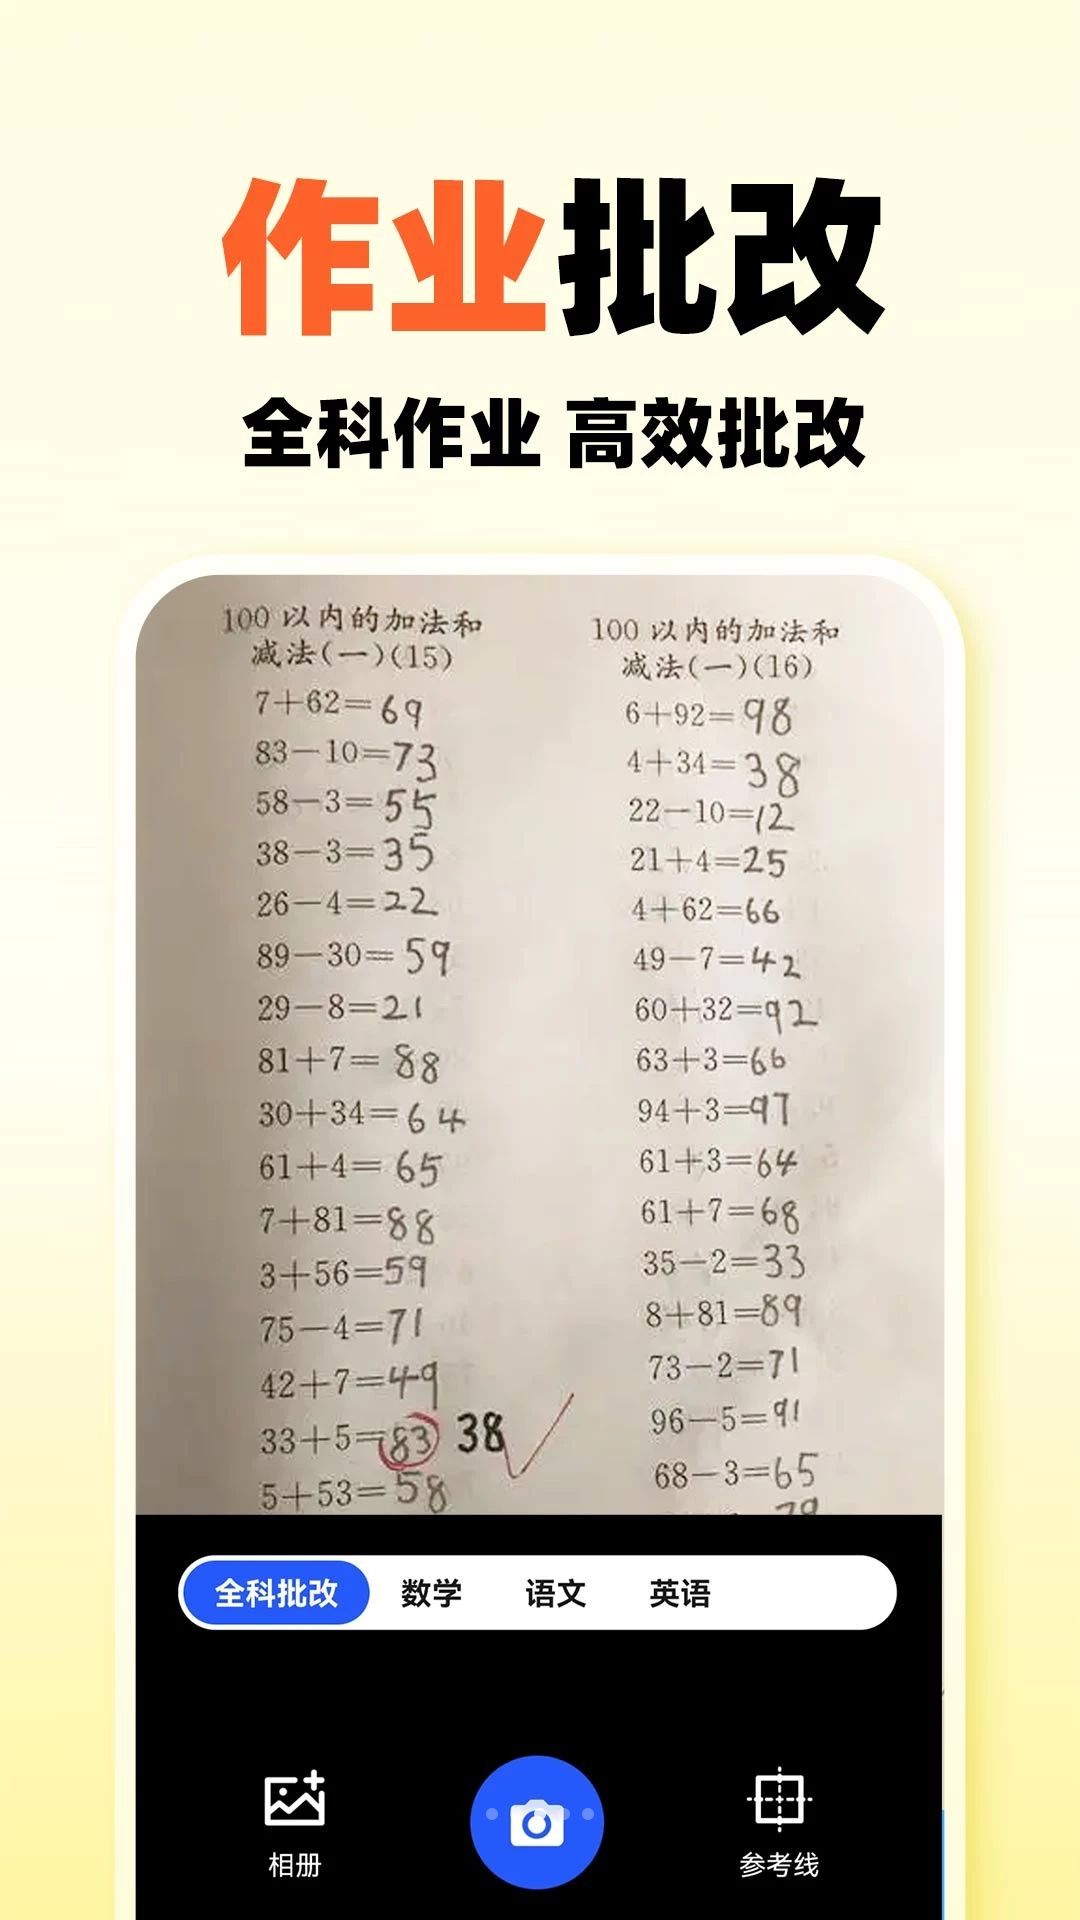 作业批改
全科作业 高效批改
100 以内的加法和
减法(一)(15)
7+62=69
83-10=73
58-3=55
38-3=35
26-4=22
89-30=59
29-8=21
81+7=88
30+34=64
61+4=65
7+81=88
3+56=59
75-4=71
42+7=49
33+5=83 38
5+53=58
100 以内的加法和
减法(一)(16)
6+92=98
4+34=38
22-10=12
21+4=25
4+62=66
49-7=42
60+32=92
63+3=66
94+3=97
61+3=64
61+7=68
35-2=33
8+81=89
73-2=71
96-5=91
68-3=65
全科批改 数学 语文 英语
相册 参考线